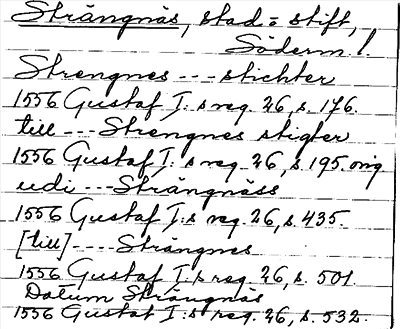 Strängnäs, stad = stift,
Söderm. l.
Strengnes --- stichter
1556 Gustaf I:s reg. 26, s. 176.
till --- Strengnes stigter
1556 Gustaf I:s reg. 26, s. 195. orig
udi --- Strängnäss
1556 Gustaf I:s reg. 26, s. 435.
[till] ---- Strängnes
1556 Gustaf I:s reg. 26, s. 501.
Datum Strängnäs
1556 Gustaf I:s reg. 26, s. 532.